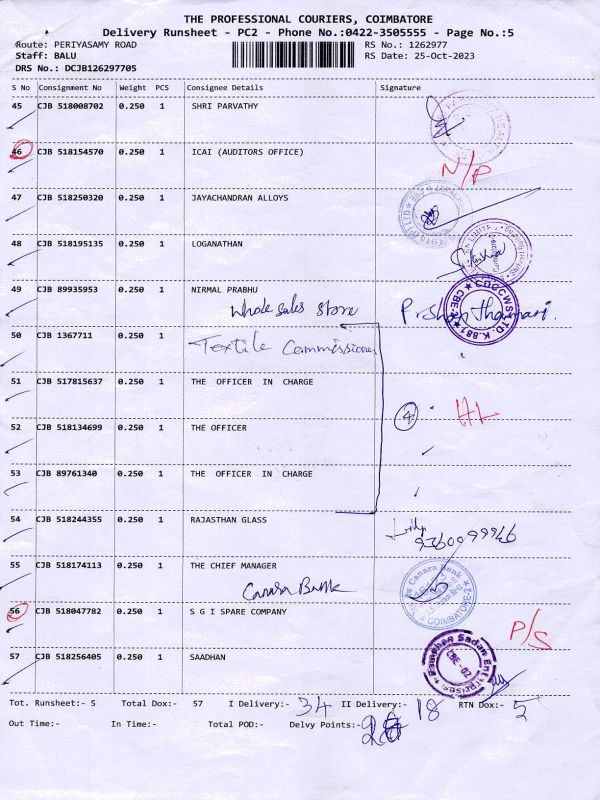 THE PROFESSIONAL COURIERS, COIMBATORE
Delivery Runsheet - PC2 - Phone No.:0422-3505555 - Page No.:5
Route: PERIYASAMY ROAD RS No.: 1262977
Staff: BALU RS Date: 25-Oct-2023
DRS No.: DCJB126297705
S No Consignment No Weight PCS Consignee Details Signature
45 CJB 518008702 0.250 1 SHRI PARVATHY
46 CJB 518154570 0.250 1 ICAI (AUDITORS OFFICE) N/P
47 CJB 518250320 0.250 1 JAYACHANDRAN ALLOYS
48 CJB 518195135 0.250 1 LOGANATHAN
49 CJB 89935953 0.250 1 NIRMAL PRABHU
Whole sales store
CDCCWS LTD. K.881 CBE-2
50 CJB 1367711 0.250 1 Textile Commissioner
51 CJB 517815637 0.250 1 THE OFFICER IN CHARGE
4
52 CJB 518134699 0.250 1 THE OFFICER
53 CJB 89761340 0.250 1 THE OFFICER IN CHARGE
54 CJB 518244355 0.250 1 RAJASTHAN GLASS
55 CJB 518174113 0.250 1 THE CHIEF MANAGER
Canara Bank
Canara Bank COIMBATORE-2
56 CJB 518047782 0.250 1 S G I SPARE COMPANY P/S
57 CJB 518256405 0.250 1 SAADHAN
Sadan Enterprises CBE-02
Tot. Runsheet:- 5 Total Dox:- 57 I Delivery:- 34 II Delivery:- 18 RTN Dox:- 5
Out Time:- In Time:- Total POD:- Delvy Points:-